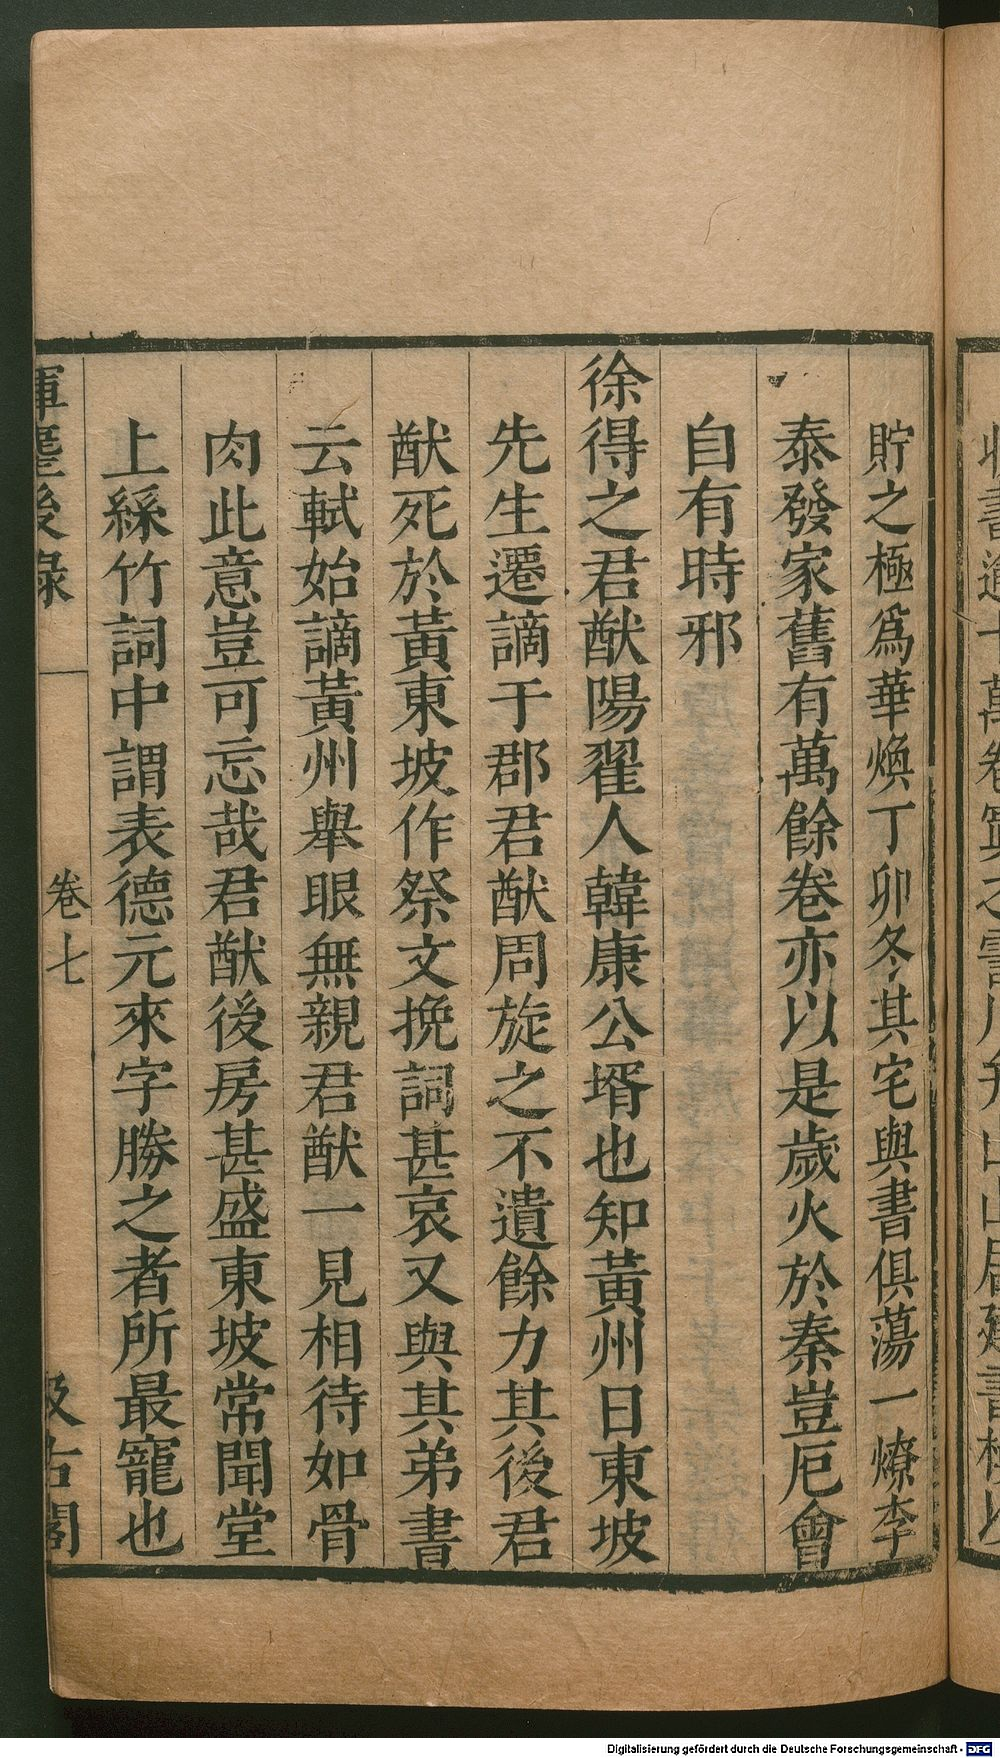 貯之極爲華煥丁卯冬其宅與書俱蕩一燎李
泰發家舊有萬餘卷亦以是歲火於秦豈厄會
自有時邪
徐得之君猷陽翟人韓康公壻也知黃州日東坡
先生遷謫于郡君猷周旋之不遺餘力其後君
猷死於黃東坡作祭文挽詞甚哀又與其弟書
云軾始謫黃州舉眼無親君猷一見相待如骨
肉此意豈可忘哉君猷後房甚盛東坡常聞堂
上絲竹詞中謂表德元來字勝之者所最寵也
揮麈後錄
卷七
汲古閣
Digitalisierung gefördert durch die Deutsche Forschungsgemeinschaft - DFG